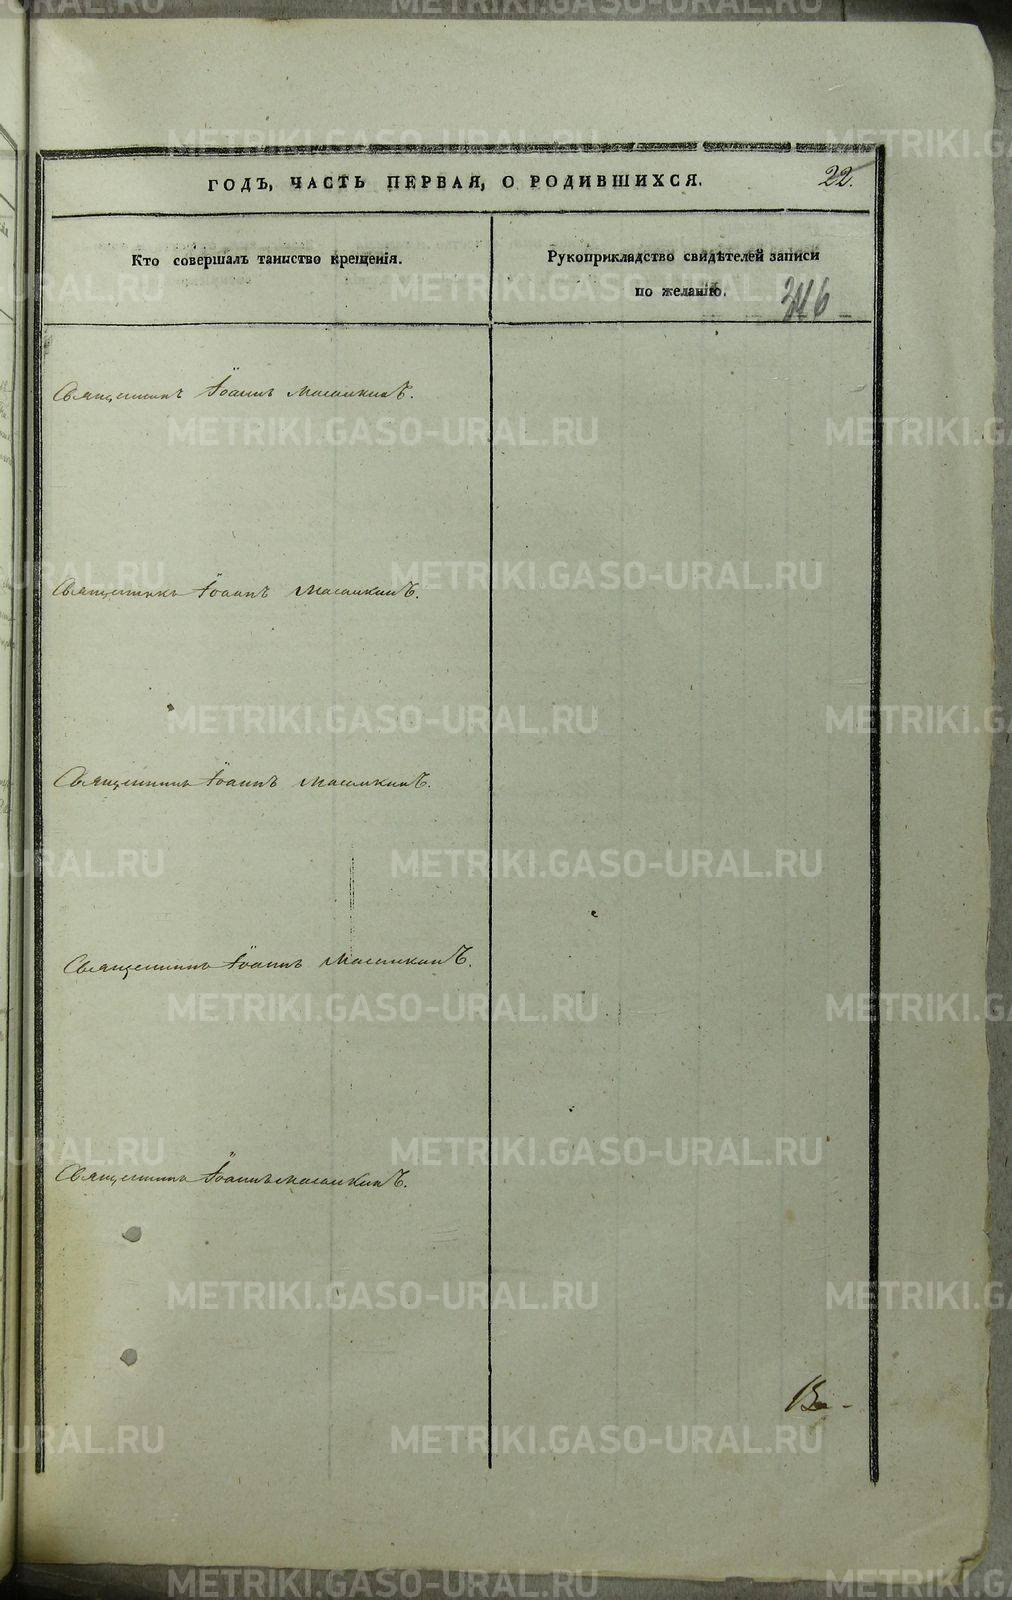 ГОДЪ, ЧАСТЬ ПЕРВАЯ, О РОДИВШИХСЯ. 22.
Кто совершалъ таинство крещенія.
Рукоприкладство свидѣтелей записи
по желанію. 346
Священникъ Іоаннъ Масалкинъ.
Священникъ Іоаннъ Масалкинъ.
Священникъ Іоаннъ Масалкинъ.
Священникъ Іоаннъ Масалкинъ.
Священникъ Іоаннъ Масалкинъ.
METRIKI.GASO-URAL.RU